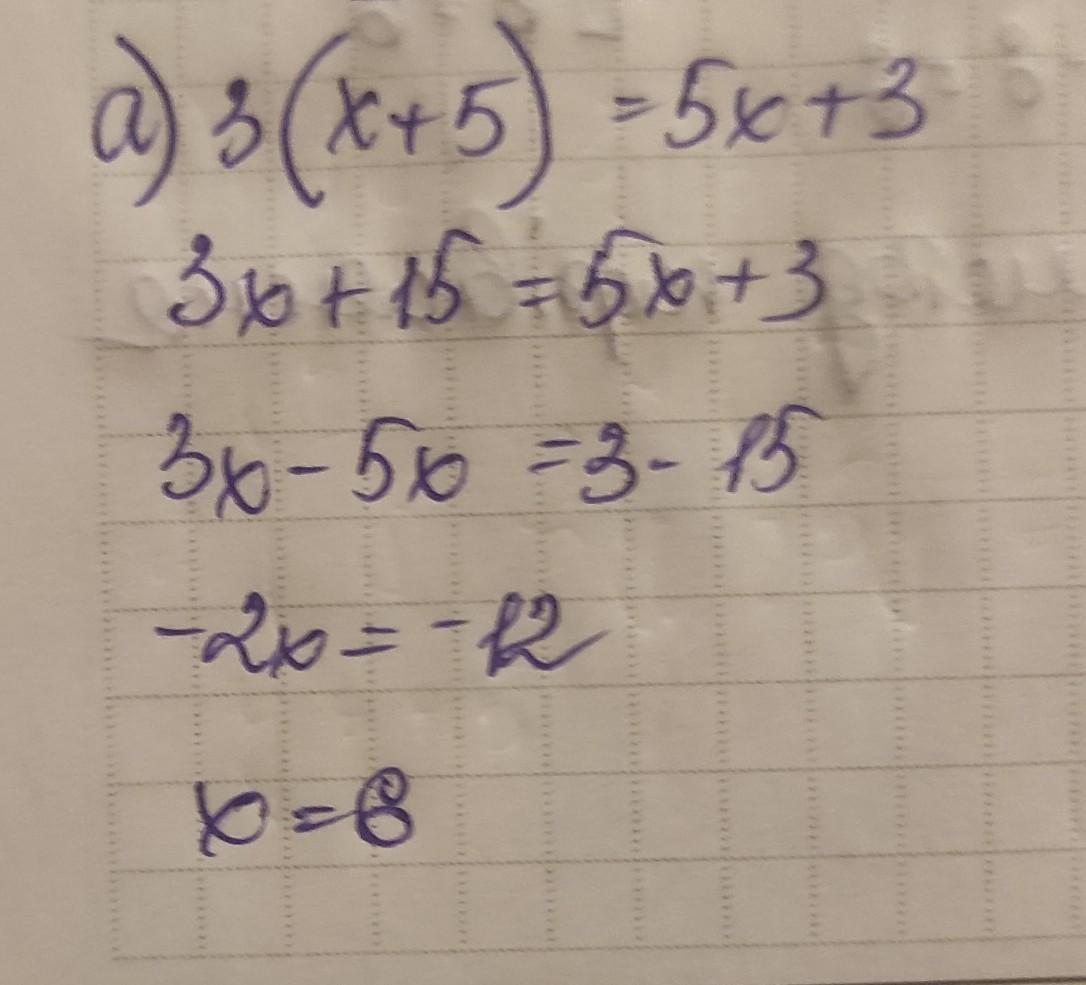 a) 3(x+5) = 5x+3
3x+15 = 5x+3
3x-5x = 3-15
-2x = -12
x = 6